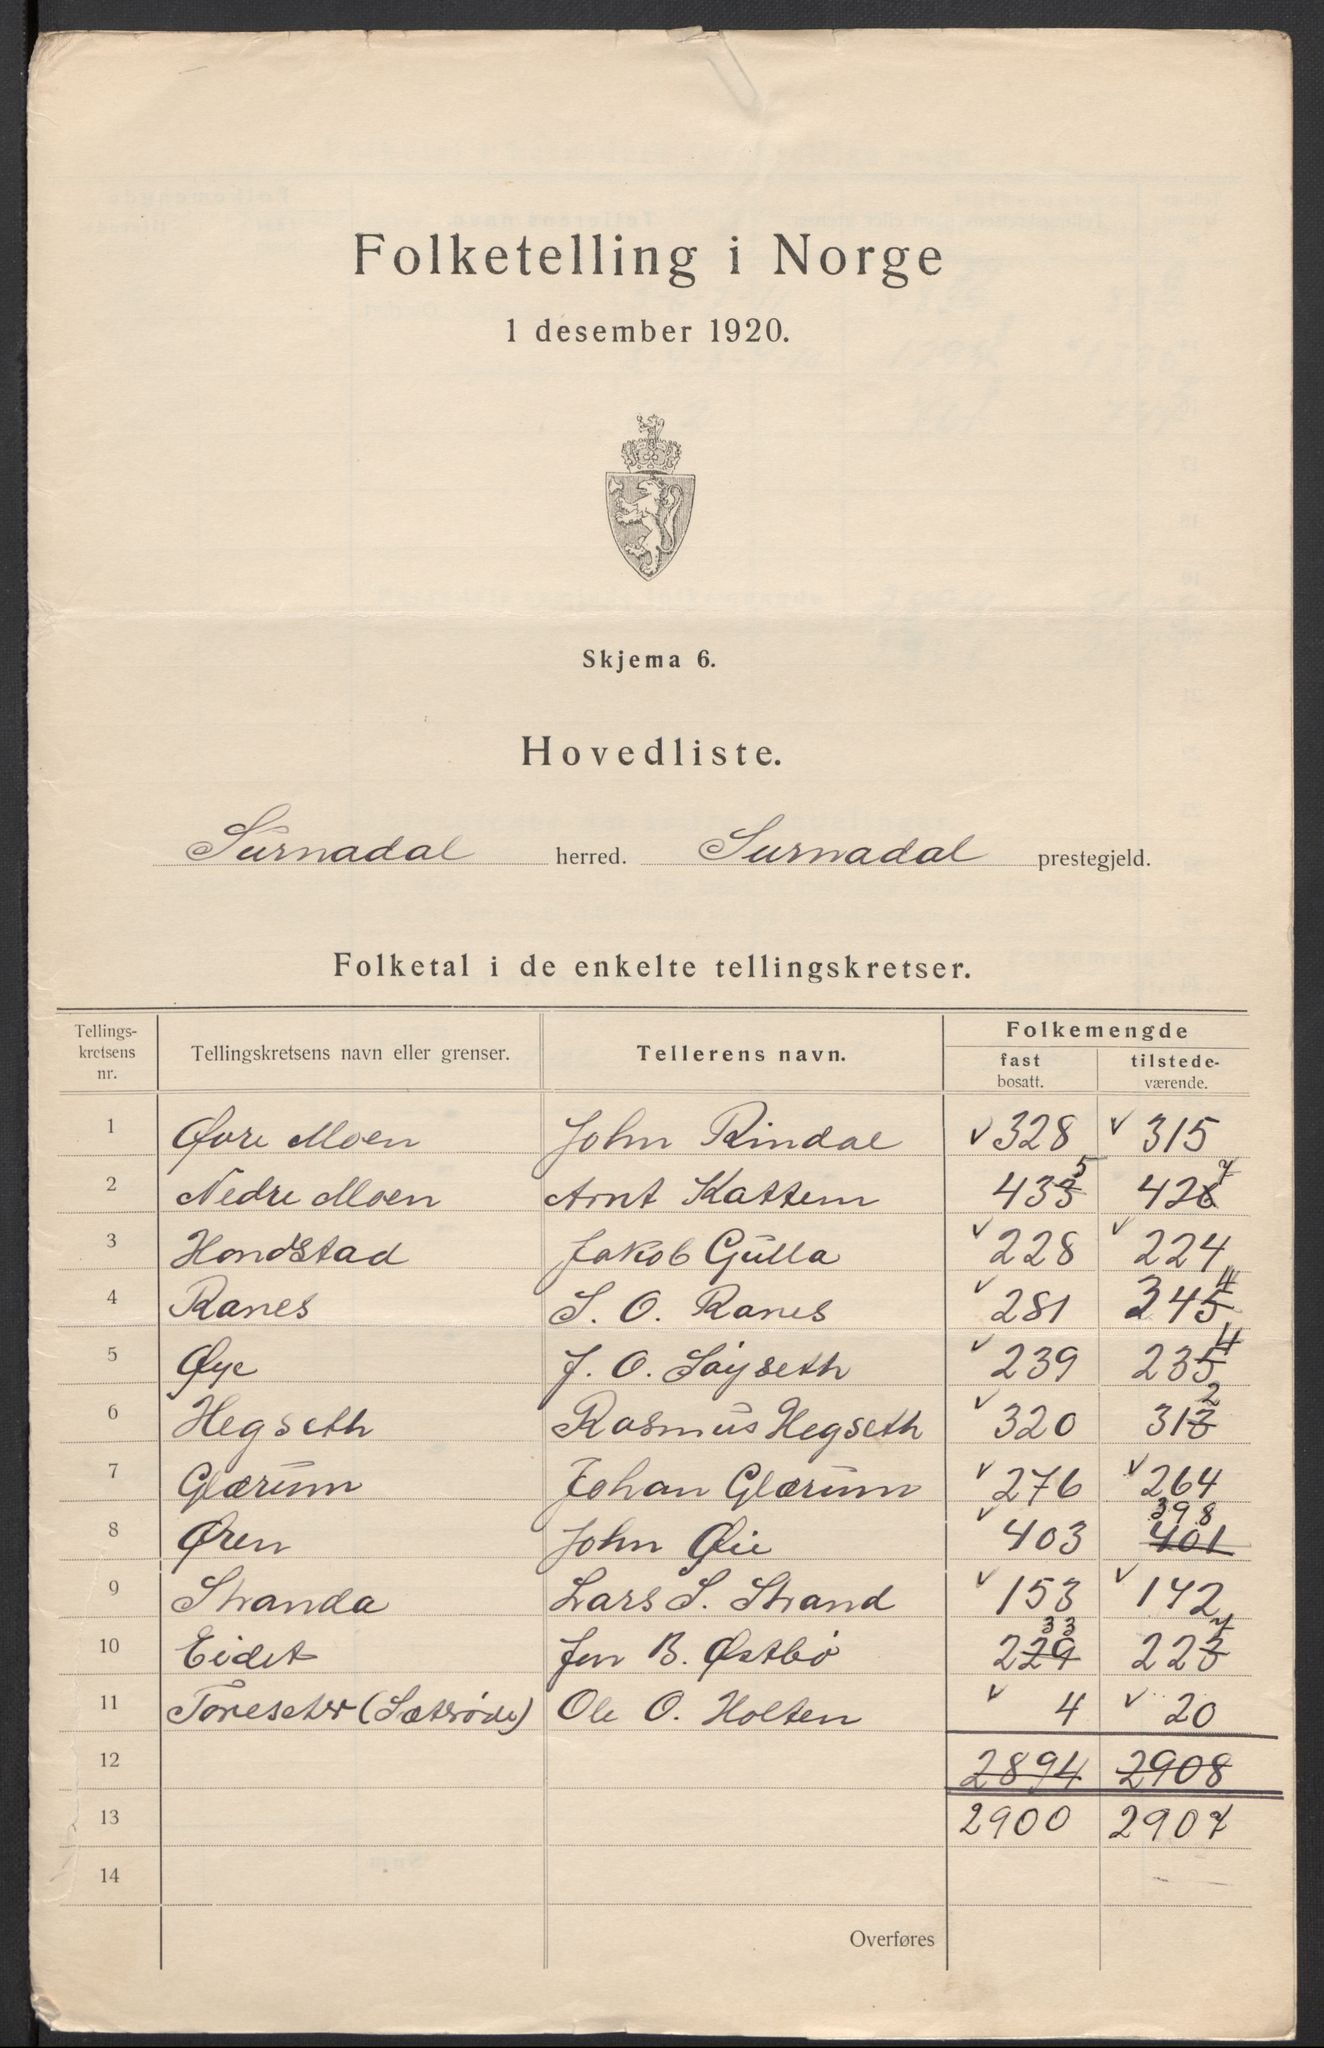 Folketelling i Norge
1 desember 1920.
Skjema 6.
Hovedliste.
Surnadal herred. Surnadal prestegjeld.
Folketal i de enkelte tellingskretser.
Tellings-kretsens nr. Tellingskretsens navn eller grenser. Tellerens navn. Folkemengde
fast bosatt. tilstede-værende.
1 Øvre Moen John Rindal v 328 v 315
2 Nedre Moen Arnt Kattem 433 5 426 7
3 Hondstad Jakob Gulla v 228 v 224
4 Ranes S. O. Ranes v 281 345 4
5 Øye J. O. Søyseth v 239 235 4
6 Hegseth Rasmus Hegseth v 320 313 2
7 Glærum Johan Glærum v 276 v 264
8 Øren John Øie v 403 401 398
9 Stranda Lars S. Strand v 153 v 142
10 Eidet Jon B. Østbø 229 33 223 7
11 Toreseter (Sætrøde) Ole O. Holten v 4 v 20
12 2894 2908
13 2900 2907
14
Overføres